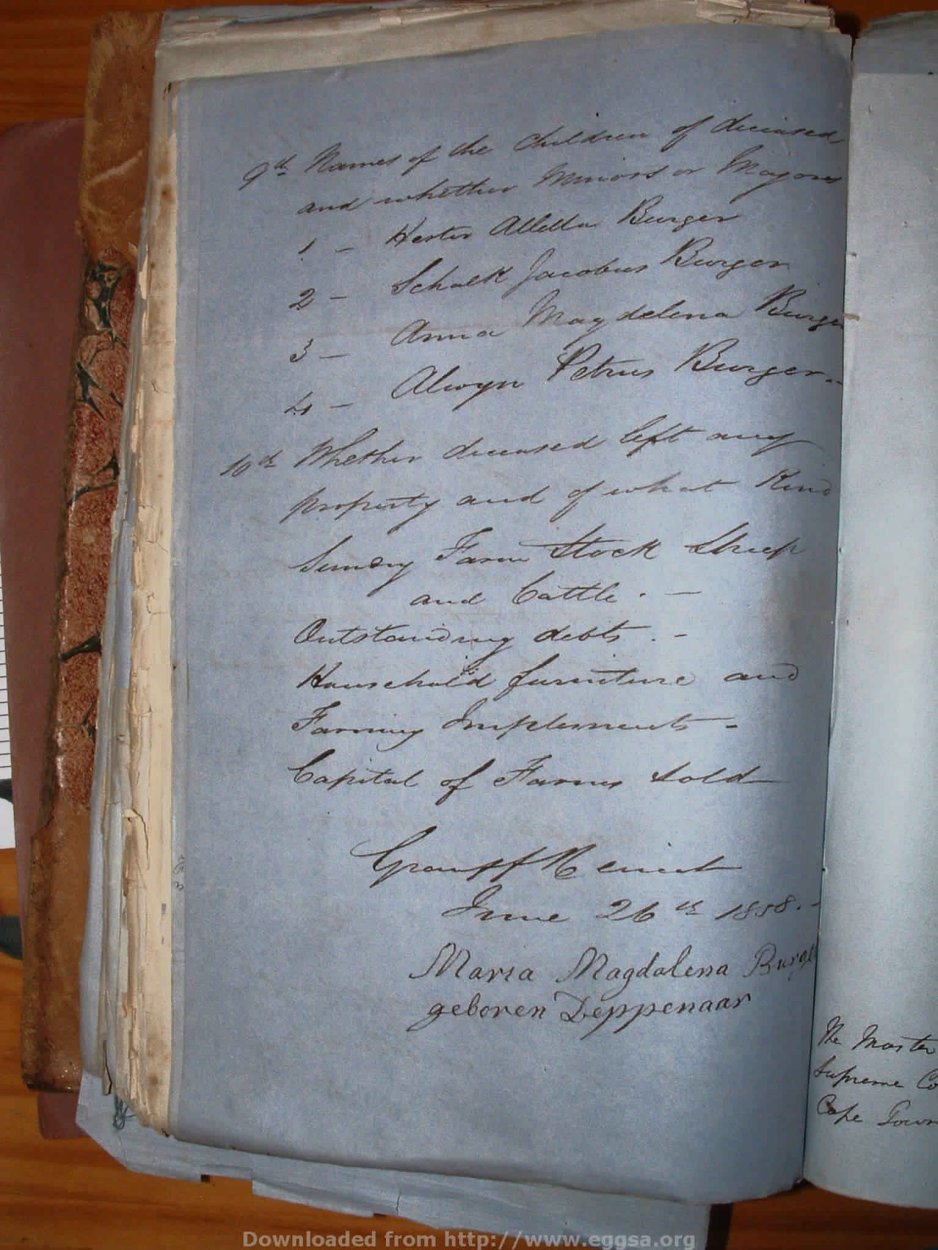 9th Names of the Children of deceased
and whether Minors or Majors
1 - Hester Alletta Burger
2 - Schalk Jacobus Burger
3 - Anna Magdelena Burger
4 - Alwyn Petrus Burger -
10th Whether deceased left any
property and of what Kind
Sundry Farm Stock Sheep
and Cattle . -
Outstanding debts . -
Household furniture and
Farming Implements -
Capital of Farms Sold
Graaff Reinet
June 26th 1858. -
Maria Magdalena Burger
geboren Deppenaar
The Master
Supreme Co
Cape Town
Downloaded from http://www.eggsa.org